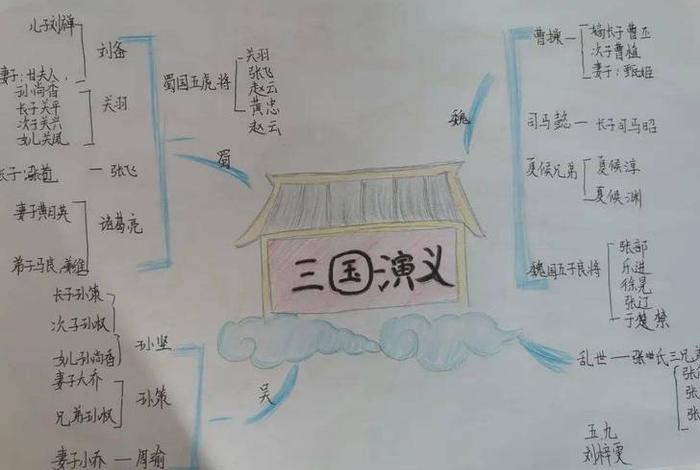 三国演义
蜀
刘备
儿子刘禅
妻子:甘夫人,
孙尚香
关羽
长子关平
次子关兴
女儿关凤
张飞
长子:张苞
诸葛亮
妻子黄月英
弟子马良,姜维
蜀国五虎将
关羽
张飞
赵云
黄忠
赵云
魏
曹操
长子曹丕
次子曹植
妻子:甄姬
司马懿
长子司马昭
夏候兄弟
夏候淳
夏候渊
魏国五子良将
张郃
乐进
徐晃
张辽
于禁
吴
孙坚
长子孙策
次子孙权
女儿孙尚香
孙策
妻子大乔
兄弟孙权
周瑜
妻子小乔
乱世
张
张
张
五九
刘梓雯